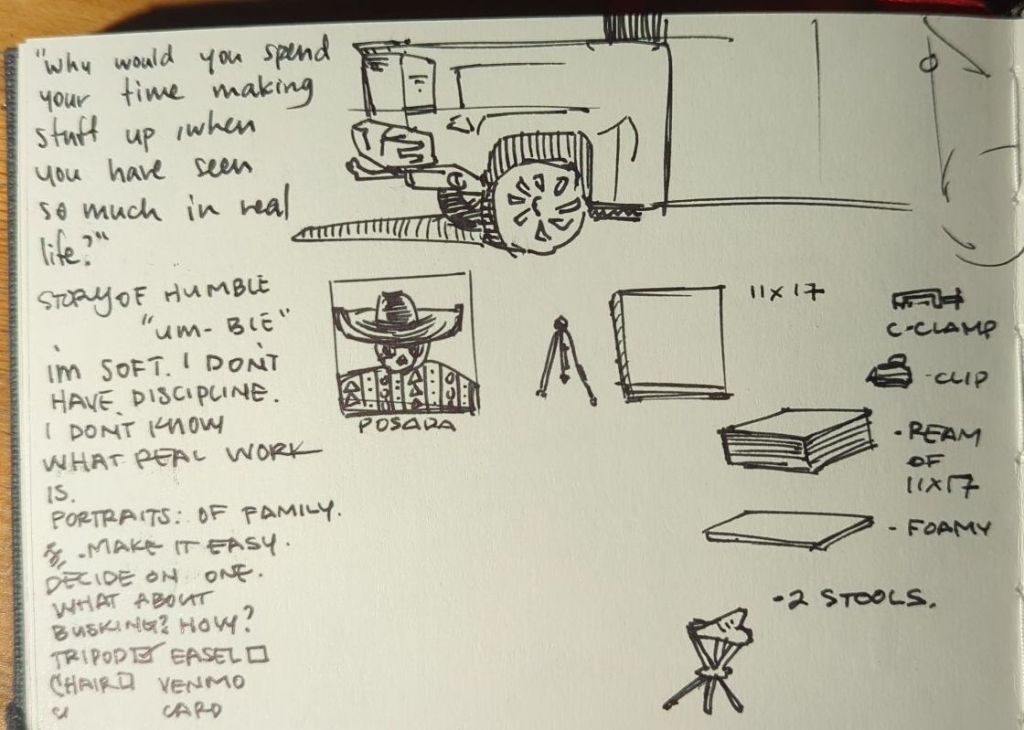 "Why would you spend
your time making
stuff up, when
you have seen
so much in real
life?"
STORY OF HUMBLE
"UM-BLE"
IM SOFT. I DON'T
HAVE DISCIPLINE.
I DON'T KNOW
WHAT REAL WORK
IS.
PORTRAITS: OF FAMILY.
. MAKE IT EASY.
DECIDE ON ONE.
WHAT ABOUT
BUSKING? HOW?
TRIPOD ☑ EASEL ☐
CHAIR ☐ VENMO
CARD
POSADA
11X17
C-CLAMP
-CLIP
-REAM
OF
11X17
-FOAMY
-2 STOOLS.